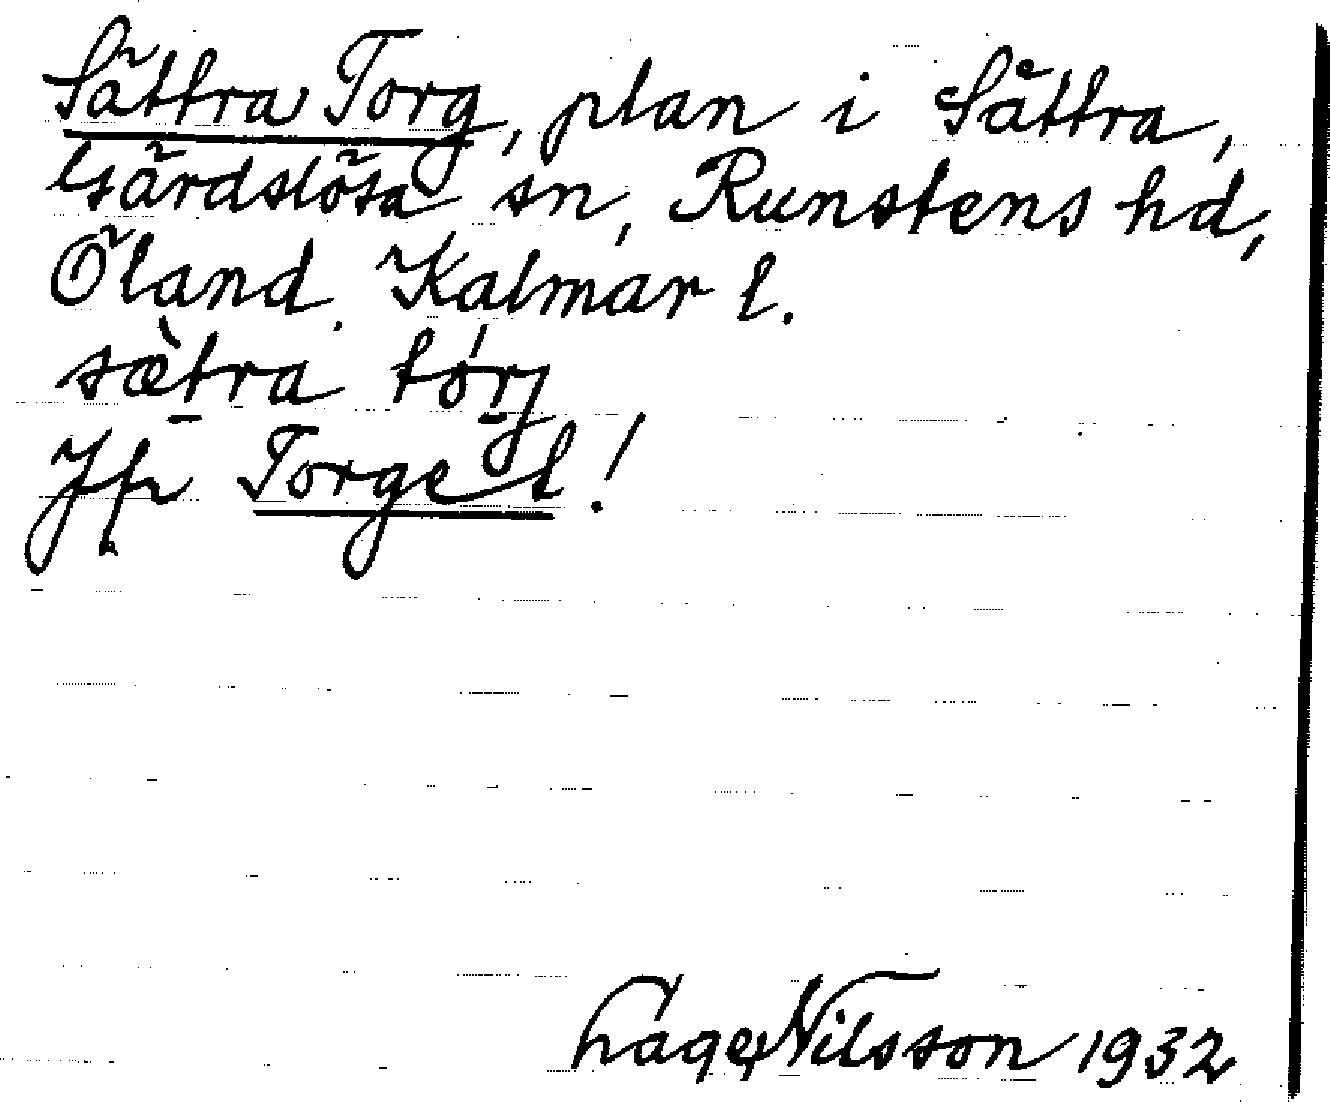 Sättra Torg, plan i Sättra,
Gärdslösa sn, Runstens hd,
Öland. Kalmar l.
sæ̀t̠ra tór̠j
Jfr Torge l!
Åage Nilsson 1932